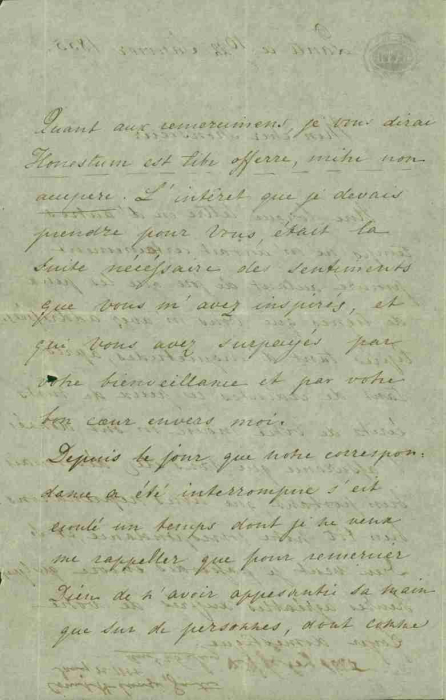 Quant aux remercimens, je vous dirai
Honestum est tibi offerre, mihi non
accipere. L'intéret que je devais
prendre pour vous, était la
suite nécéssaire des sentiments
que vous m'avez inspirés, et
qui vous avez surpayés par
votre bienveillance et par votre
bon cœur envers moi.
Depuis le jour que notre correspon=
dance a été interrompue s'est
ecoulé un temps dont je ne veux
me rappeller que pour remercier
Dieu de n'avoir appesantie sa main
que sur de personnes, dont comme